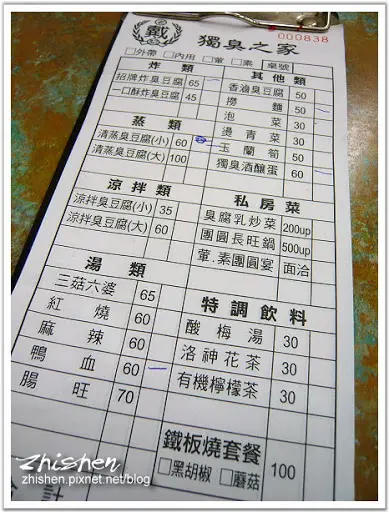 戴 獨臭之家 000838
□外帶 □內用 □葷 □素 桌號
炸類
招牌炸臭豆腐 65
一口酥炸臭豆腐 45
蒸類
清蒸臭豆腐(小) 60
清蒸臭豆腐(大) 100
涼拌類
涼拌臭豆腐(小) 35
涼拌臭豆腐(大) 60
湯類
三菇六婆 65
紅燒 60
麻辣 60
鴨血 60
腸旺 70
其他類
香滷臭豆腐 50
撈麵 50
泡菜 30
燙青菜 30
玉蘭筍 50
獨臭酒釀蛋 60
私房菜
臭腐乳炒菜 200up
團圓長旺鍋 500up
葷.素團圓宴 面洽
特調飲料
酸梅湯 30
洛神花茶 30
有機檸檬茶 30
鐵板燒套餐 100
□黑胡椒 □蘑菇
計
zhishen
zhishen.pixnet.net/blog